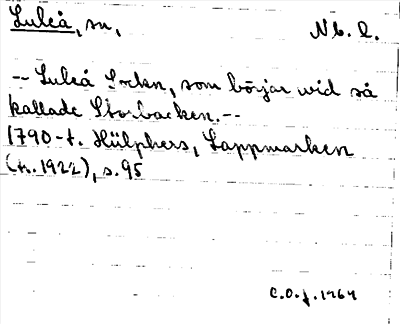 Luleå, sn,
Nb. l.
-- Luleå Sockn, som börjar wid så
kallade Storbacken. --
1790-t. Hülphers, Lappmarken
(tr. 1922), s. 95
C.O.j. 1964